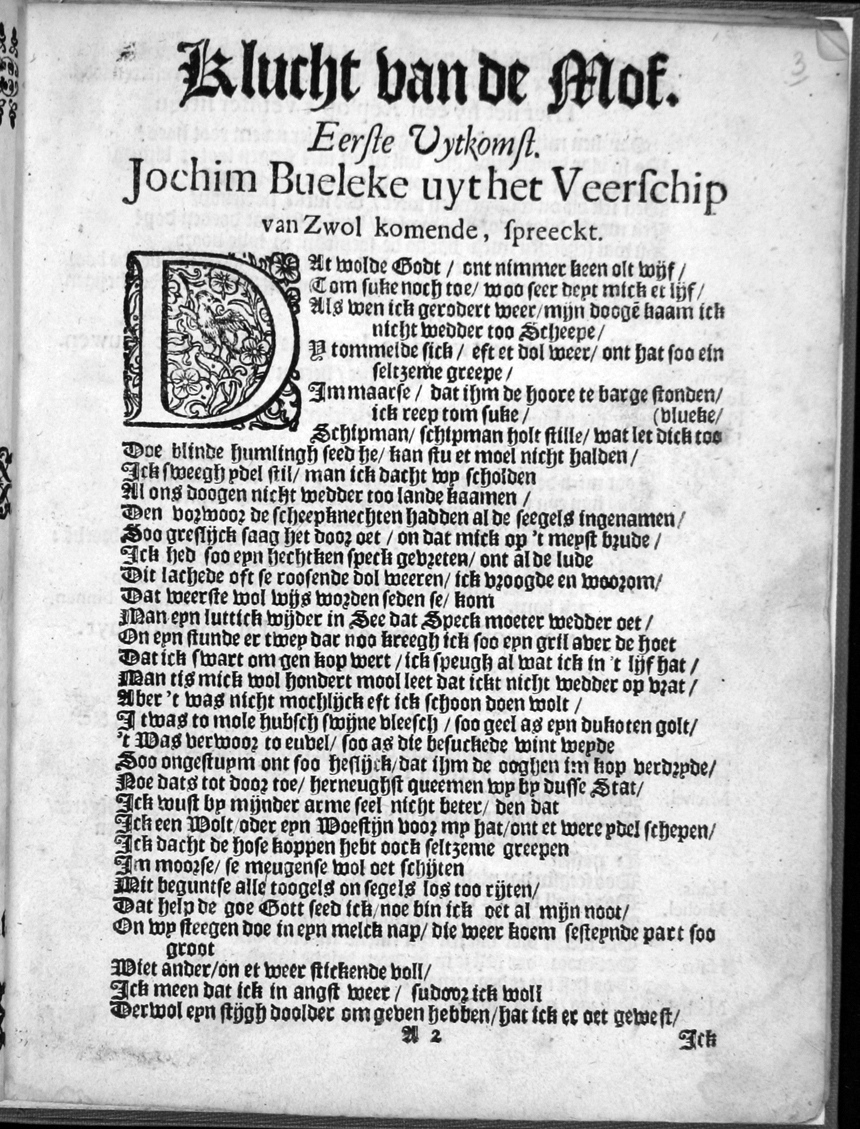 3
Klucht van de Mof.
Eerſte Uytkomſt.
Jochim Bueleke uyt het Veerſchip
van Zwol komende, ſpreeckt.
DAt wolde Godt / ont nimmer keen olt wijf /
Tom ſuke noch toe / woo ſeer deyt mick et lijf /
Als wen ick gerodert weer / mijn doogē kaam ick
nicht wedder too Scheepe /
Y tommelde ſick / eft et dol weer / ont hat ſoo ein
ſeltzeme greepe /
Immaarſe / dat ihm de hoore te barge ſtonden /
ick reep tom ſuke / (blueke /
Schipman / ſchipman holt ſtille / wat let dick too
Doe blinde humlingh ſeed he / kan ſtu et moel nicht halden /
Ick ſweegh ydel ſtil / man ick dacht wy ſcholden
Al ons doogen nicht wedder too lande kaamen /
Den vorwoor de ſcheepknechten hadden al de ſeegels ingenamen /
Soo greſlijck ſaag het door oet / on dat mick op 't meyſt brude /
Ick hed ſoo eyn hechtken ſpeck gevreten / ont al de lude
Dit lachede oft ſe rooſende dol weeren / ick vroogde en woorom /
Dat weerſte wol wijs worden ſeden ſe / kom
Man eyn luttick wijder in See dat Speck moeter wedder oet /
On eyn ſtunde er twey dar noo kreegh ick ſoo eyn gril aver de hoet
Dat ick ſwart om gen kop wert / ick ſpeugh al wat ick in 't lijf hat /
Man tis mick wol hondert mool leet dat ickt nicht wedder op vrat /
Aber 't was nicht mochlijck eft ick ſchoon doen wolt /
I twas to mole hubſch ſwijne vleeſch / ſoo geel as eyn dukoten golt /
't Was verwoor to euvel / ſoo as die beſuckede wint weyde
Soo ongeſtuym ont ſoo heſlijck / dat ihm de ooghen im kop verdryde /
Noe dats tot door toe / herneughſt queemen wy by duſſe Stat /
Ick wuſt by mijnder arme ſeel nicht beter / den dat
Ick een Wolt / oder eyn Woeſtijn voor my hat / ont et were ydel ſchepen /
Ick dacht de hoſe koppen hebt oock ſeltzeme greepen
Im moorſe / ſe meugenſe wol oet ſchijten
Mit beguntſe alle toogels on ſegels los too rijten /
Dat help de goe Gott ſeed ick / noe bin ick oet al mijn noot /
On wy ſteegen doe in eyn melck nap / die weer koem ſeſteynde part ſoo
groot
Wiet ander / on et weer ſtickende voll /
Ick meen dat ick in angſt weer / ſudoor ick woll
Derwol eyn ſtijgh doolder om geven hebben / hat ick er oet geweſt /
A 2
Ick